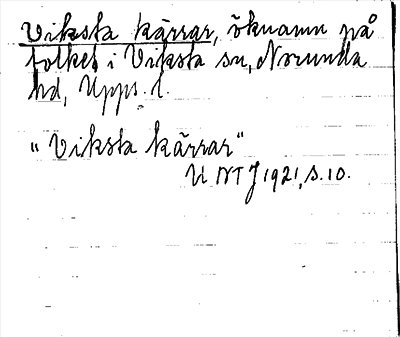 Viksta kärrar, öknamn på
folket i Viksta sn, Norunda
hd, Upps. l.
"Viksta kärrar"
U NTJ 1921, s. 10.